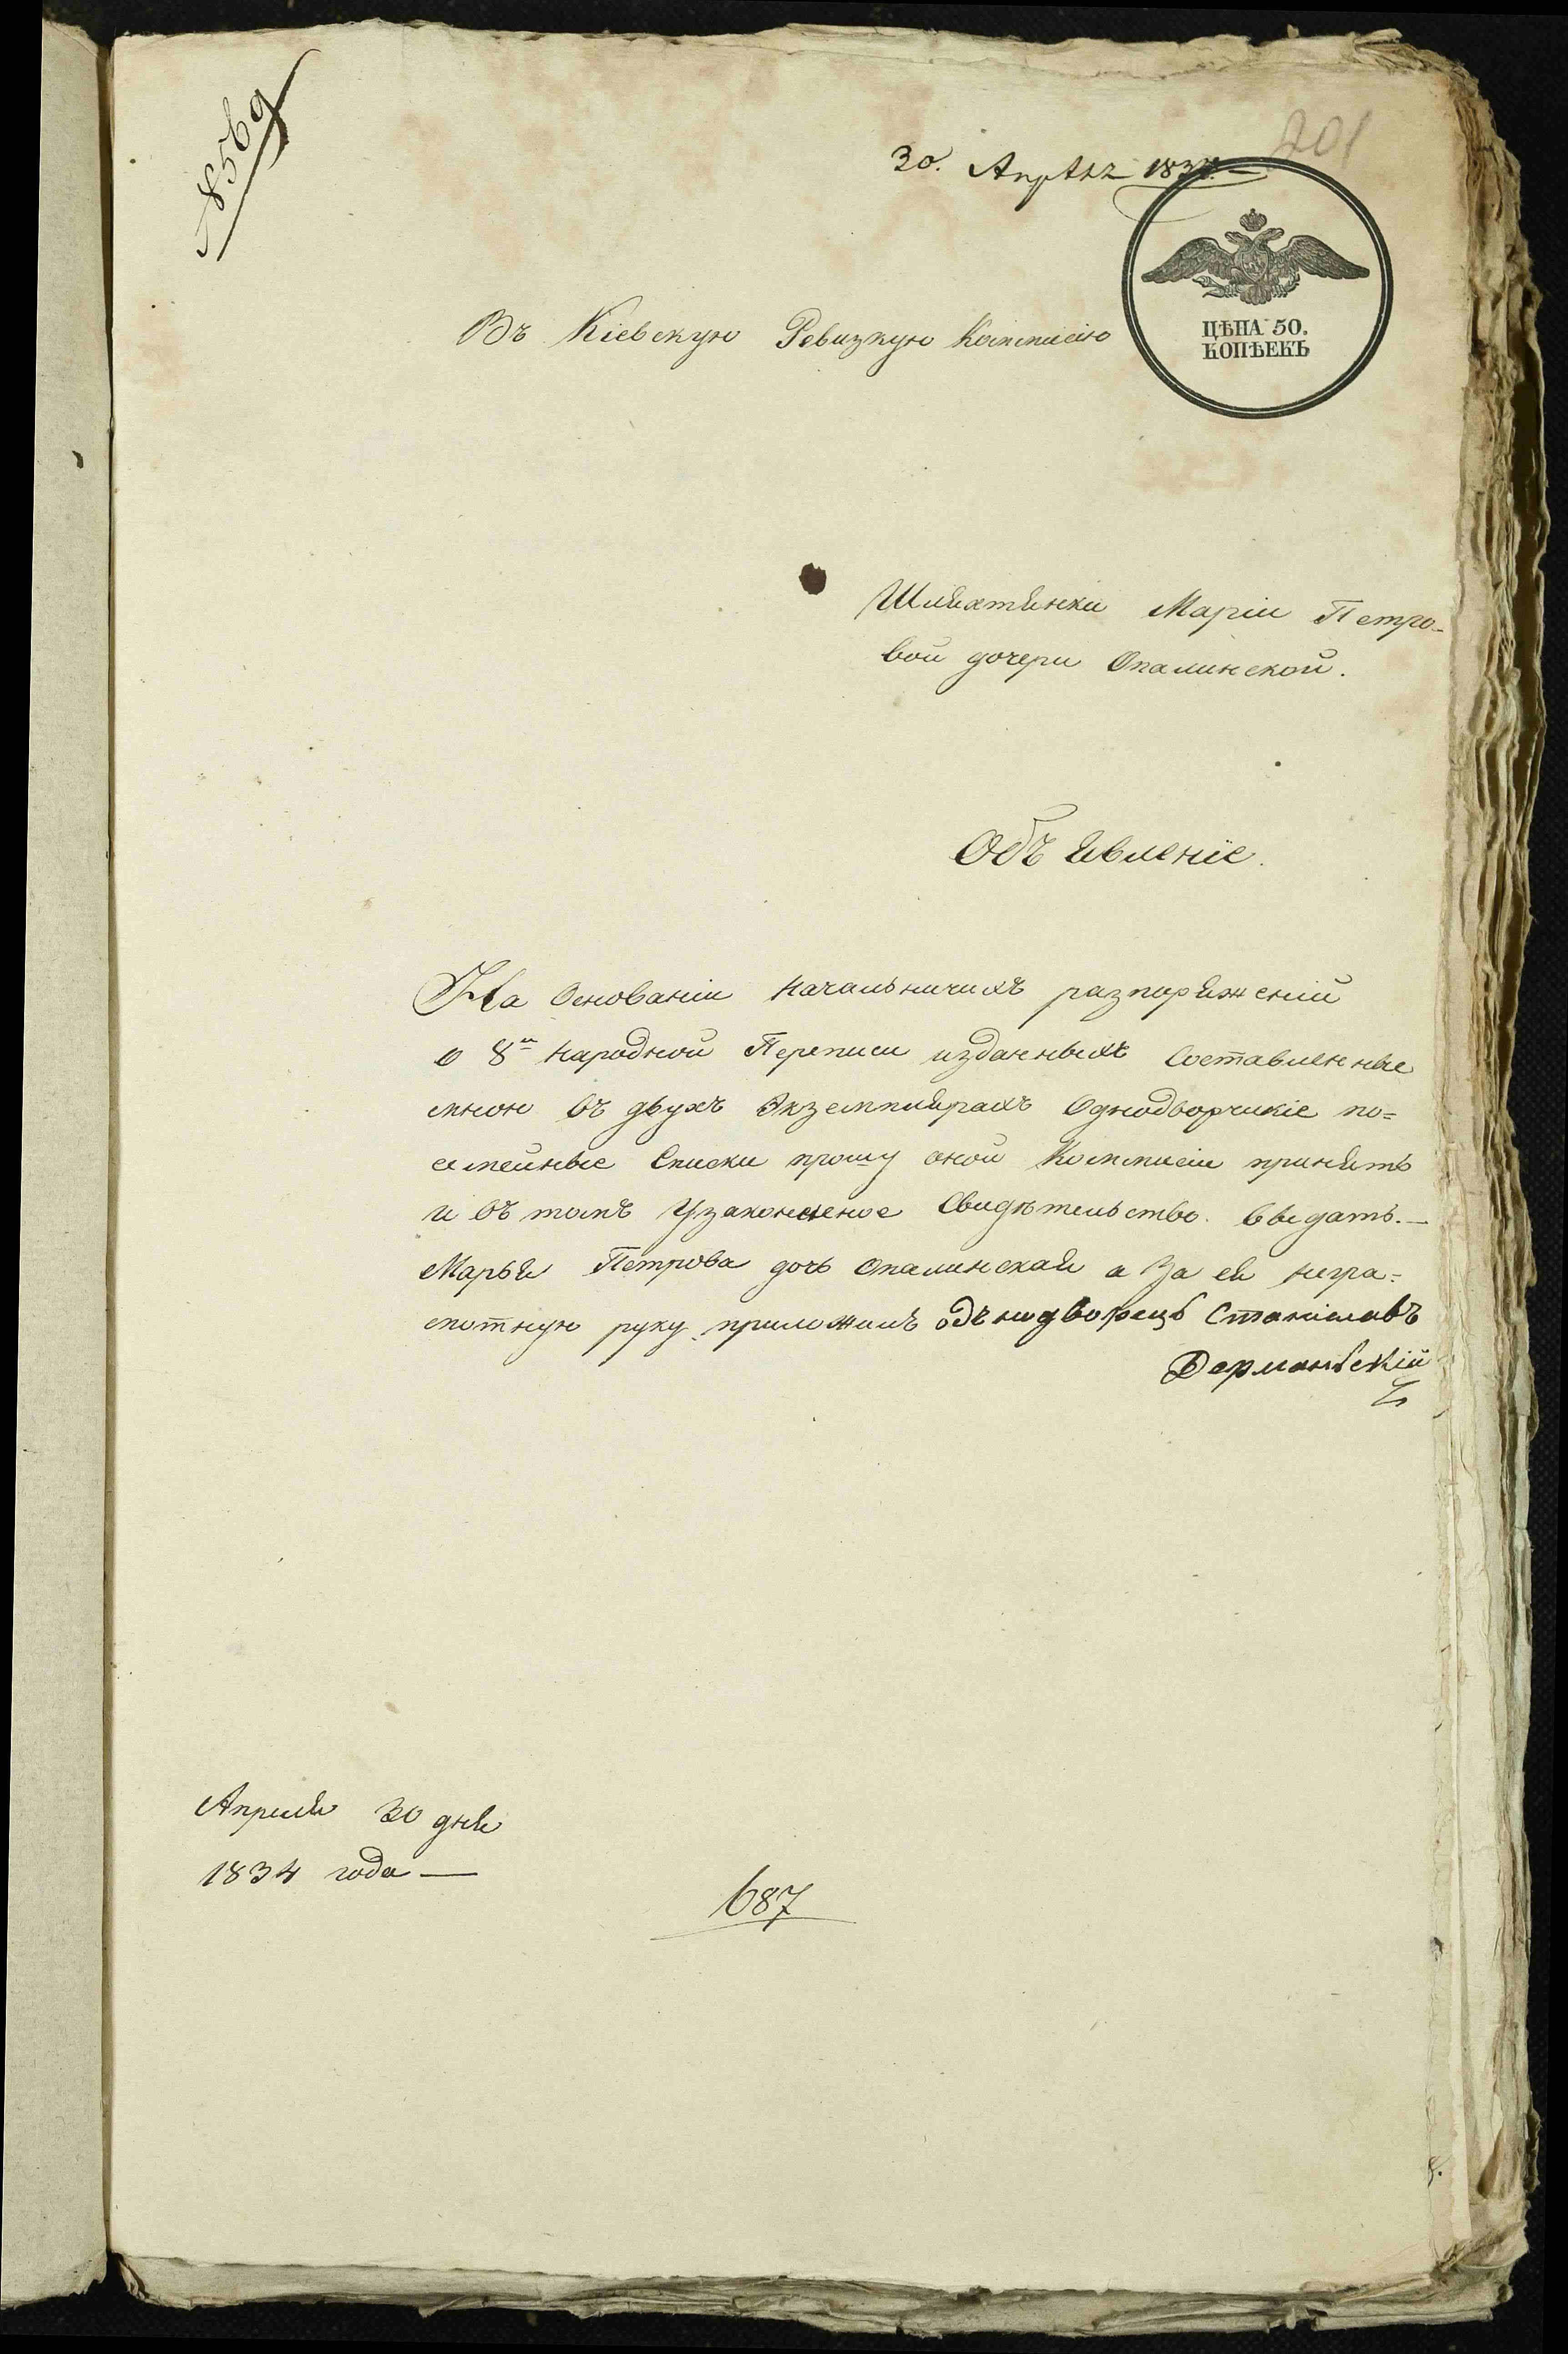 № 8569
201
30. Апрѣля 1834.
ЦѢНА 50.
КОПѢЕКЪ
Въ Кіевскую Ревизкую Коммисію
Шляхтянки Маріи Петро-
вой дочери Опалинской.
Объявленіе.
На Основаніи начальничихъ разпоряженій
о 8й народной Переписи изданныхъ Составленные
мною въ двухъ Экземплярахъ Однодворчикіе по=
семейные Списки прошу оной Коммисіи принять
и въ томъ Узаконенное Свидѣтельство выдать.—
Марья Петрова дочь Опалинская а За ея негра=
мотную руку приложилъ однодворецъ Станіславъ
Дермансѣкій
Апреля 30 дня
1834 года —
687